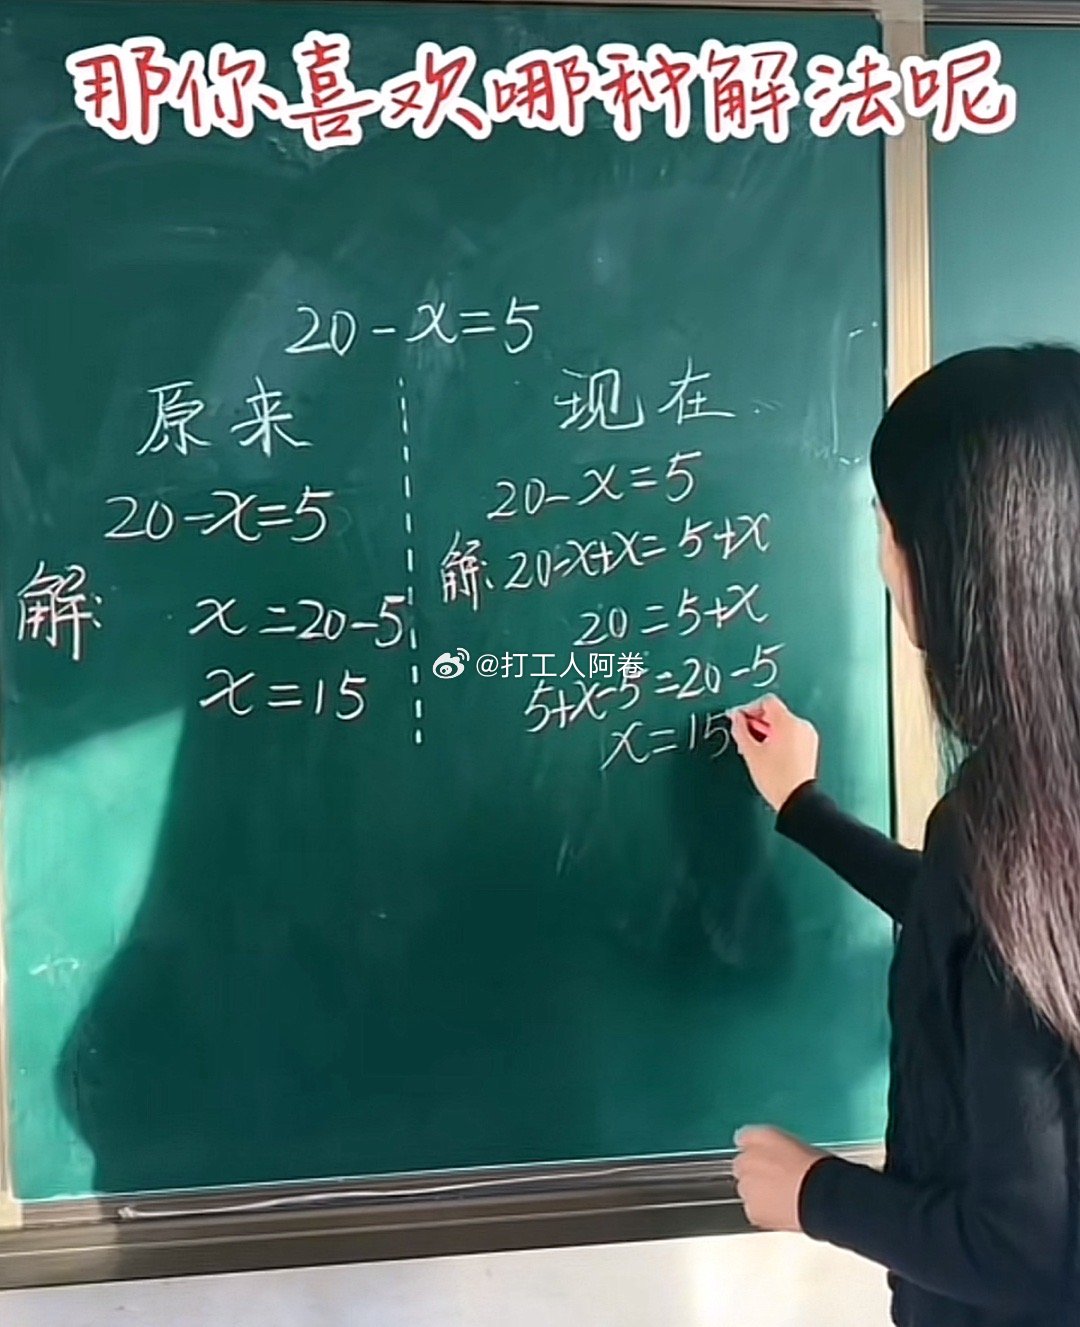 那你喜欢哪种解法呢
20-x=5
原来
20-x=5
解:
x=20-5
x=15
现在
20-x=5
解:20-x+x=5+x
20=5+x
@打工人阿卷
5+x-5=20-5
x=15